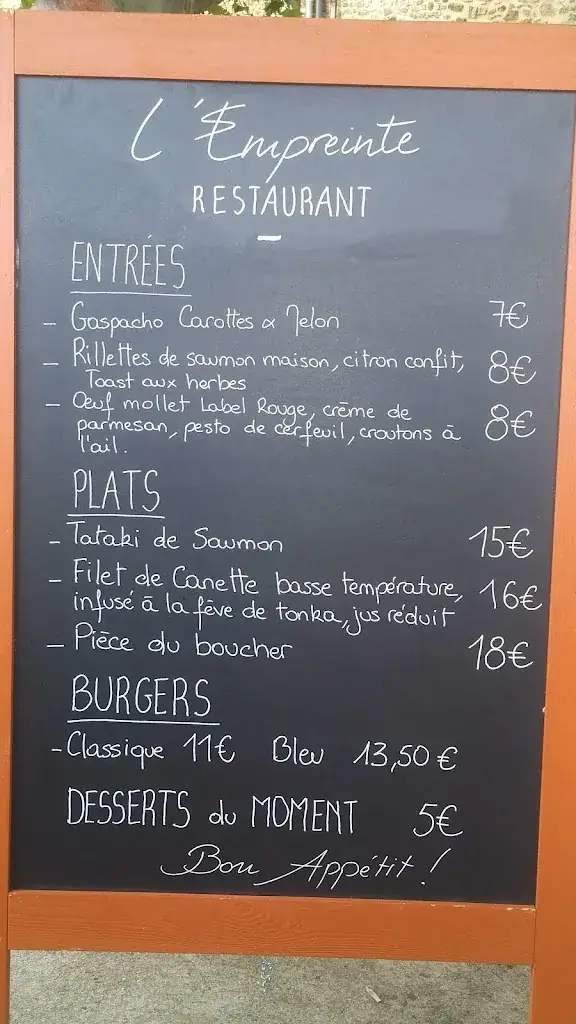 L'Empreinte
RESTAURANT
ENTRÉES
- Gaspacho Carottes & Melon 7€
- Rillettes de saumon maison, citron confit, 8€
Toast aux herbes
- Œuf mollet Label Rouge, crème de 8€
parmesan, pesto de cerfeuil, croutons à
l'ail.
PLATS
- Tataki de Saumon 15€
- Filet de Canette basse température, 16€
infusé à la fève de tonka, jus réduit
- Pièce du boucher 18€
BURGERS
- Classique 11€ Bleu 13,50€
DESSERTS du MOMENT 5€
Bon Appétit !